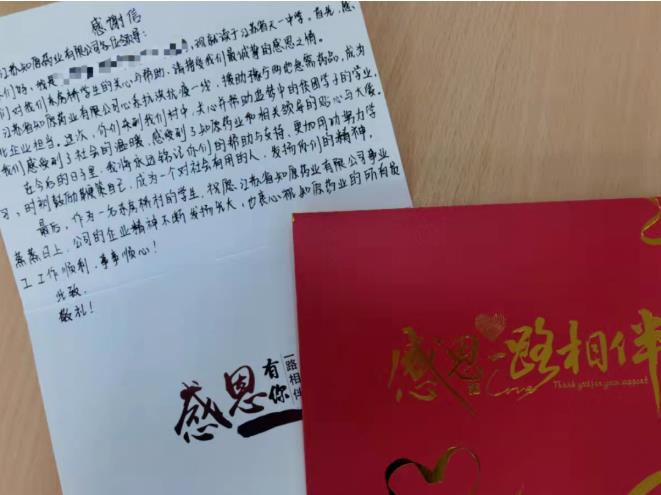 感谢信
江苏知原药业有限公司各位领导：
你们好，我是 现就读于江苏省天一中学。首先，感
谢你们对我们东房桥学生的关心与帮助，请接受我们最诚挚的感恩之情。
江苏知原药业有限公司心系抗洪抗疫一线，援助物与两地急需药品，成为
企业担当。这次，你们来到我们村中，关心并帮助逆势中的贫困学子的学业，
我们感受到了社会的温暖，感受到了知原药业和相关领导的贴心与大爱。
在今后的日子里，我将永远铭记你们的帮助与支持，更加用功努力学
习，时刻鼓励鞭策自己，成为一个对社会有用的人，发扬你们的精神。
最后，作为一名东房桥村的学生，祝愿江苏省知原药业有限公司事业
蒸蒸日上，公司的企业精神不断发扬光大，也衷心祝知原药业的所有员
工工作顺利，事事顺心！
此致，
敬礼！
感恩有你
一路相伴
感恩一路相伴
Love
Thank you for your support